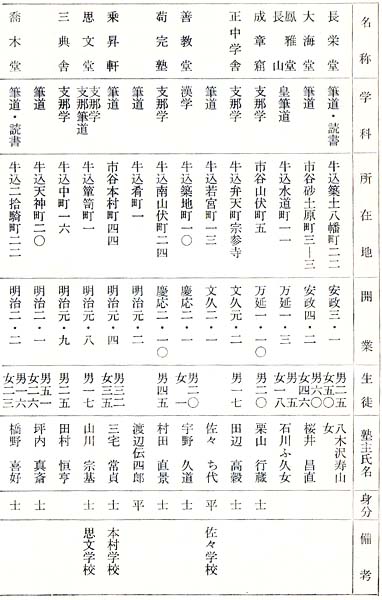 名称 学科 所在地 開業 生徒 塾主氏名 身分 備考
長栄堂 筆道・読書 牛込築土八幡町二二 安政三・一 男二五 女五〇 八木沢寿山女
大海堂 筆道 市谷砂土原町三―三 安政四・二 男六〇 女四六 桜井昌直 士
鳳雅堂 長山 皇筆道 牛込水道町一一 万延一・三 男五 女八 石川ふ久女
成章窟 支那学 市谷山伏町五 万延一・一〇 男二〇 栗山行蔵 士
正中学舎 支那学 牛込弁天町宗参寺 文久元・二 男一七 田辺高毅 士
筆道 牛込若宮町一三 文久二・一 佐々ち代 平 佐々学校
善教堂 漢学 牛込築地町一〇 慶応二・一 男二〇 女一 宇野久道 士
荀完塾 支那学 牛込南山伏町二四 慶応二・一〇 男四五 村田直景 士
筆道 牛込肴町一 明治元・二 渡辺伝四郎 平
乗昇軒 筆道 市谷本村町四四 明治元・四 男三二 女三五 三宅常貞 士 本村学校
思文堂 支那学 支那筆道 牛込簞笥町一 明治元・八 男一七 山川宗基 士 思文学校
三典舎 支那学 牛込中町一六 明治元・九 男二五 田村恒亨 士
筆道 牛込天神町二〇 明治二・一 男五一 女二六 坪内真斎 士
喬木堂 筆道・読書 牛込二拾騎町二二 明治二・二 男一六 女二三 橋野喜好 士